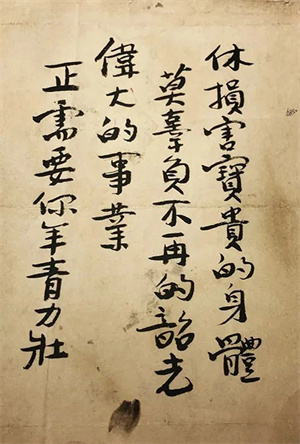 休損害寶貴的身體
莫辜負不再的韶光
偉大的事業
正需要你年青力壯